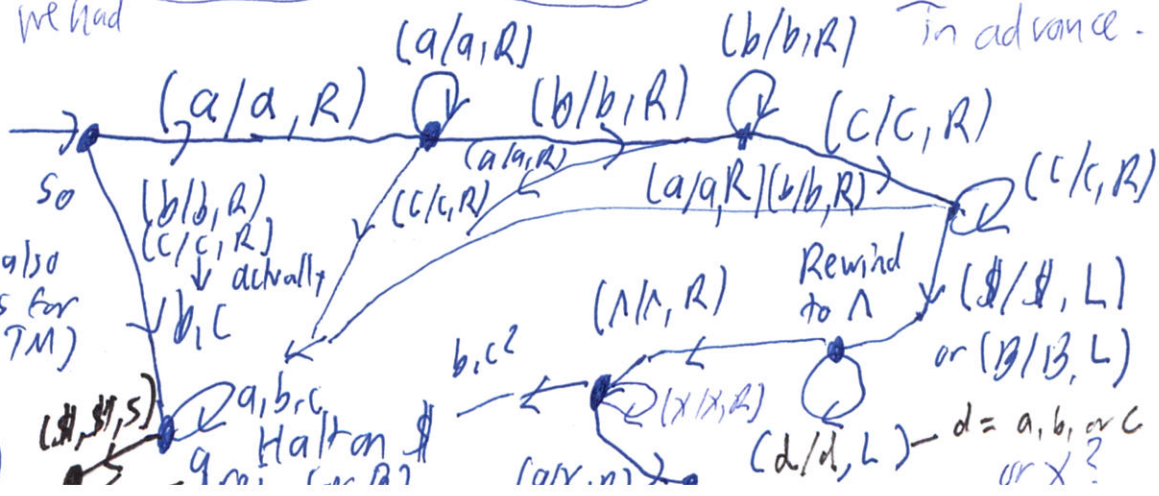 we had
In advance.
(a/a, R)
(a/a, R)
(b/b, R)
(b/b, R)
(C/C, R)
(C/C, R)
s₀
(b/b, R)
(C/C, R)
↓ actually
b, C
(a/a, R)
(C/C, R)
(a/a, R)(b/b, R)
also
s for
TM)
Rewind
to Λ
($/$, L)
or (B/B, L)
(Λ/Λ, R)
b, c?
(X/X, R)
(d/d, L) — d = a, b, or c
or X?
($, $, S)
a, b, c
Halt on $